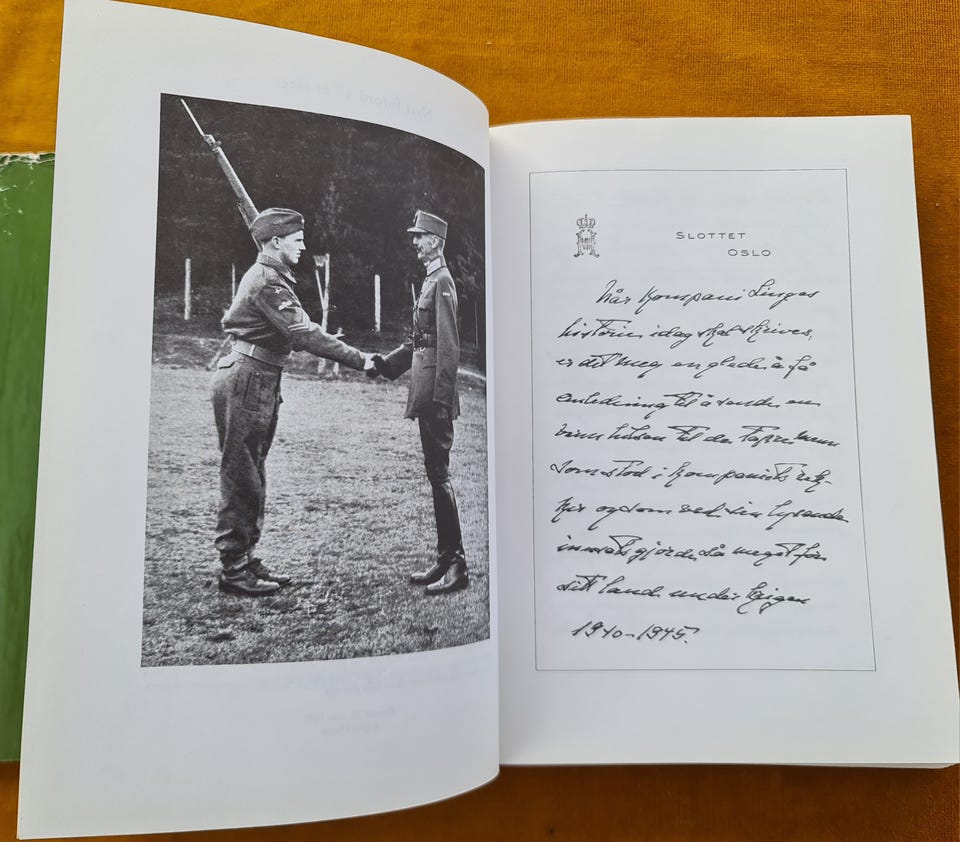 SLOTTET
OSLO
Når Kompani Linges
historie idag skal skrives,
er det meg en glede å få
anledning til å sende en
varm hilsen til de tapre menn
som stod i Kompaniets rek-
ker og som ved sin lysende
innsats gjorde så meget for
sitt land under krigen
1940-1945.